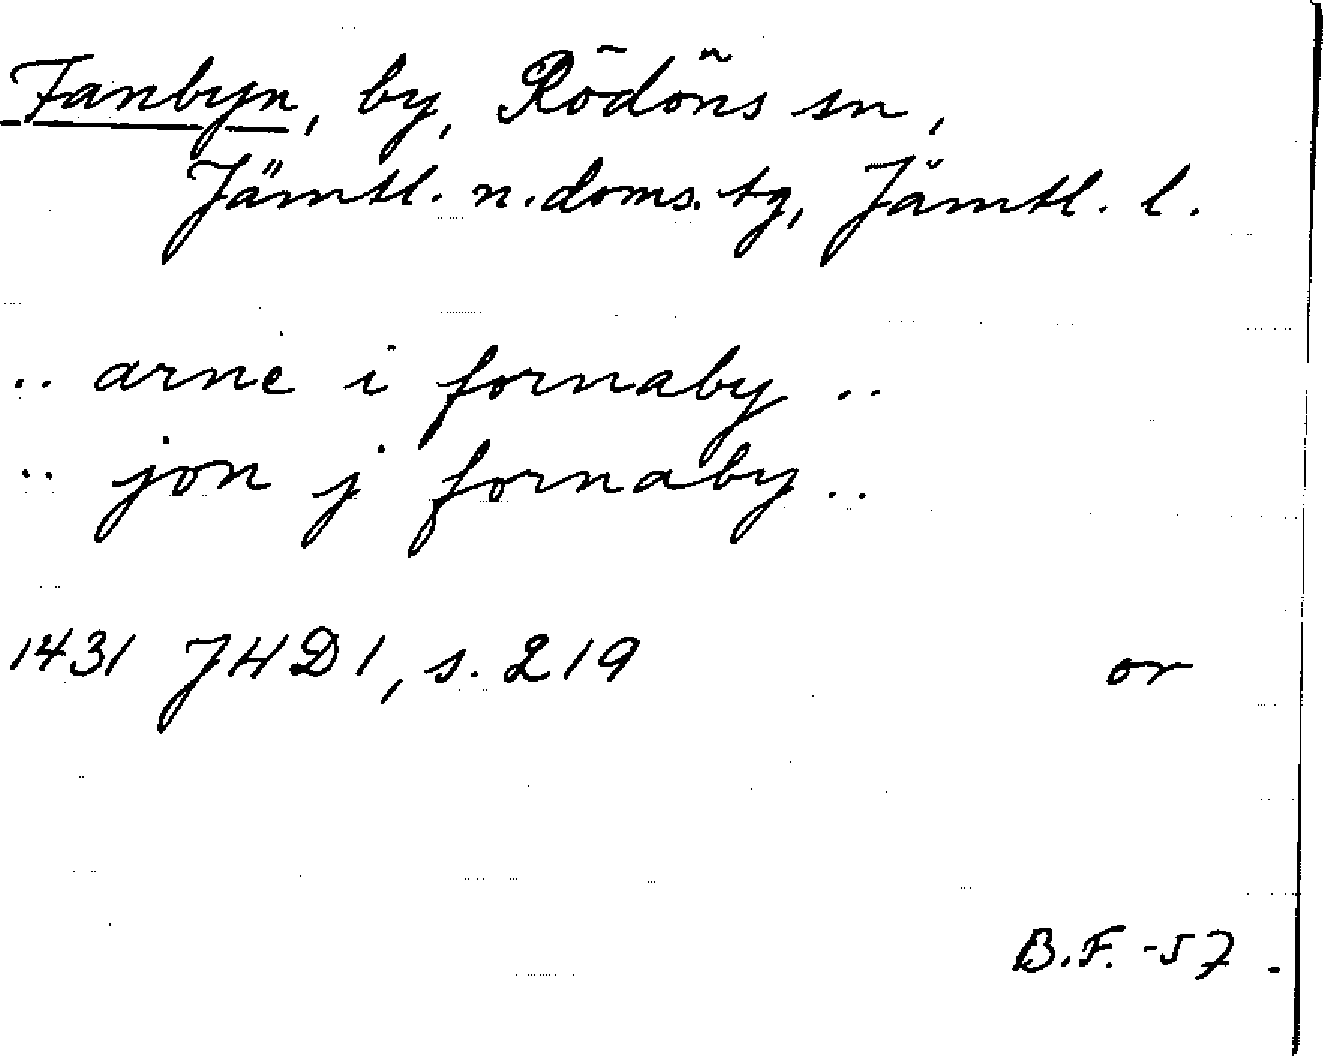 Fanbyn, by, Rödöns sn,
Jämtl. n. doms. tg, Jämtl. l.
.. arne i fornaby ..
.. jon j fornaby ..
1431 JHD 1, s. 219 or
B.F. -57.